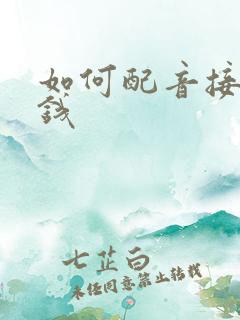 如何配音接
錢
七芷白
未经同意禁止转载